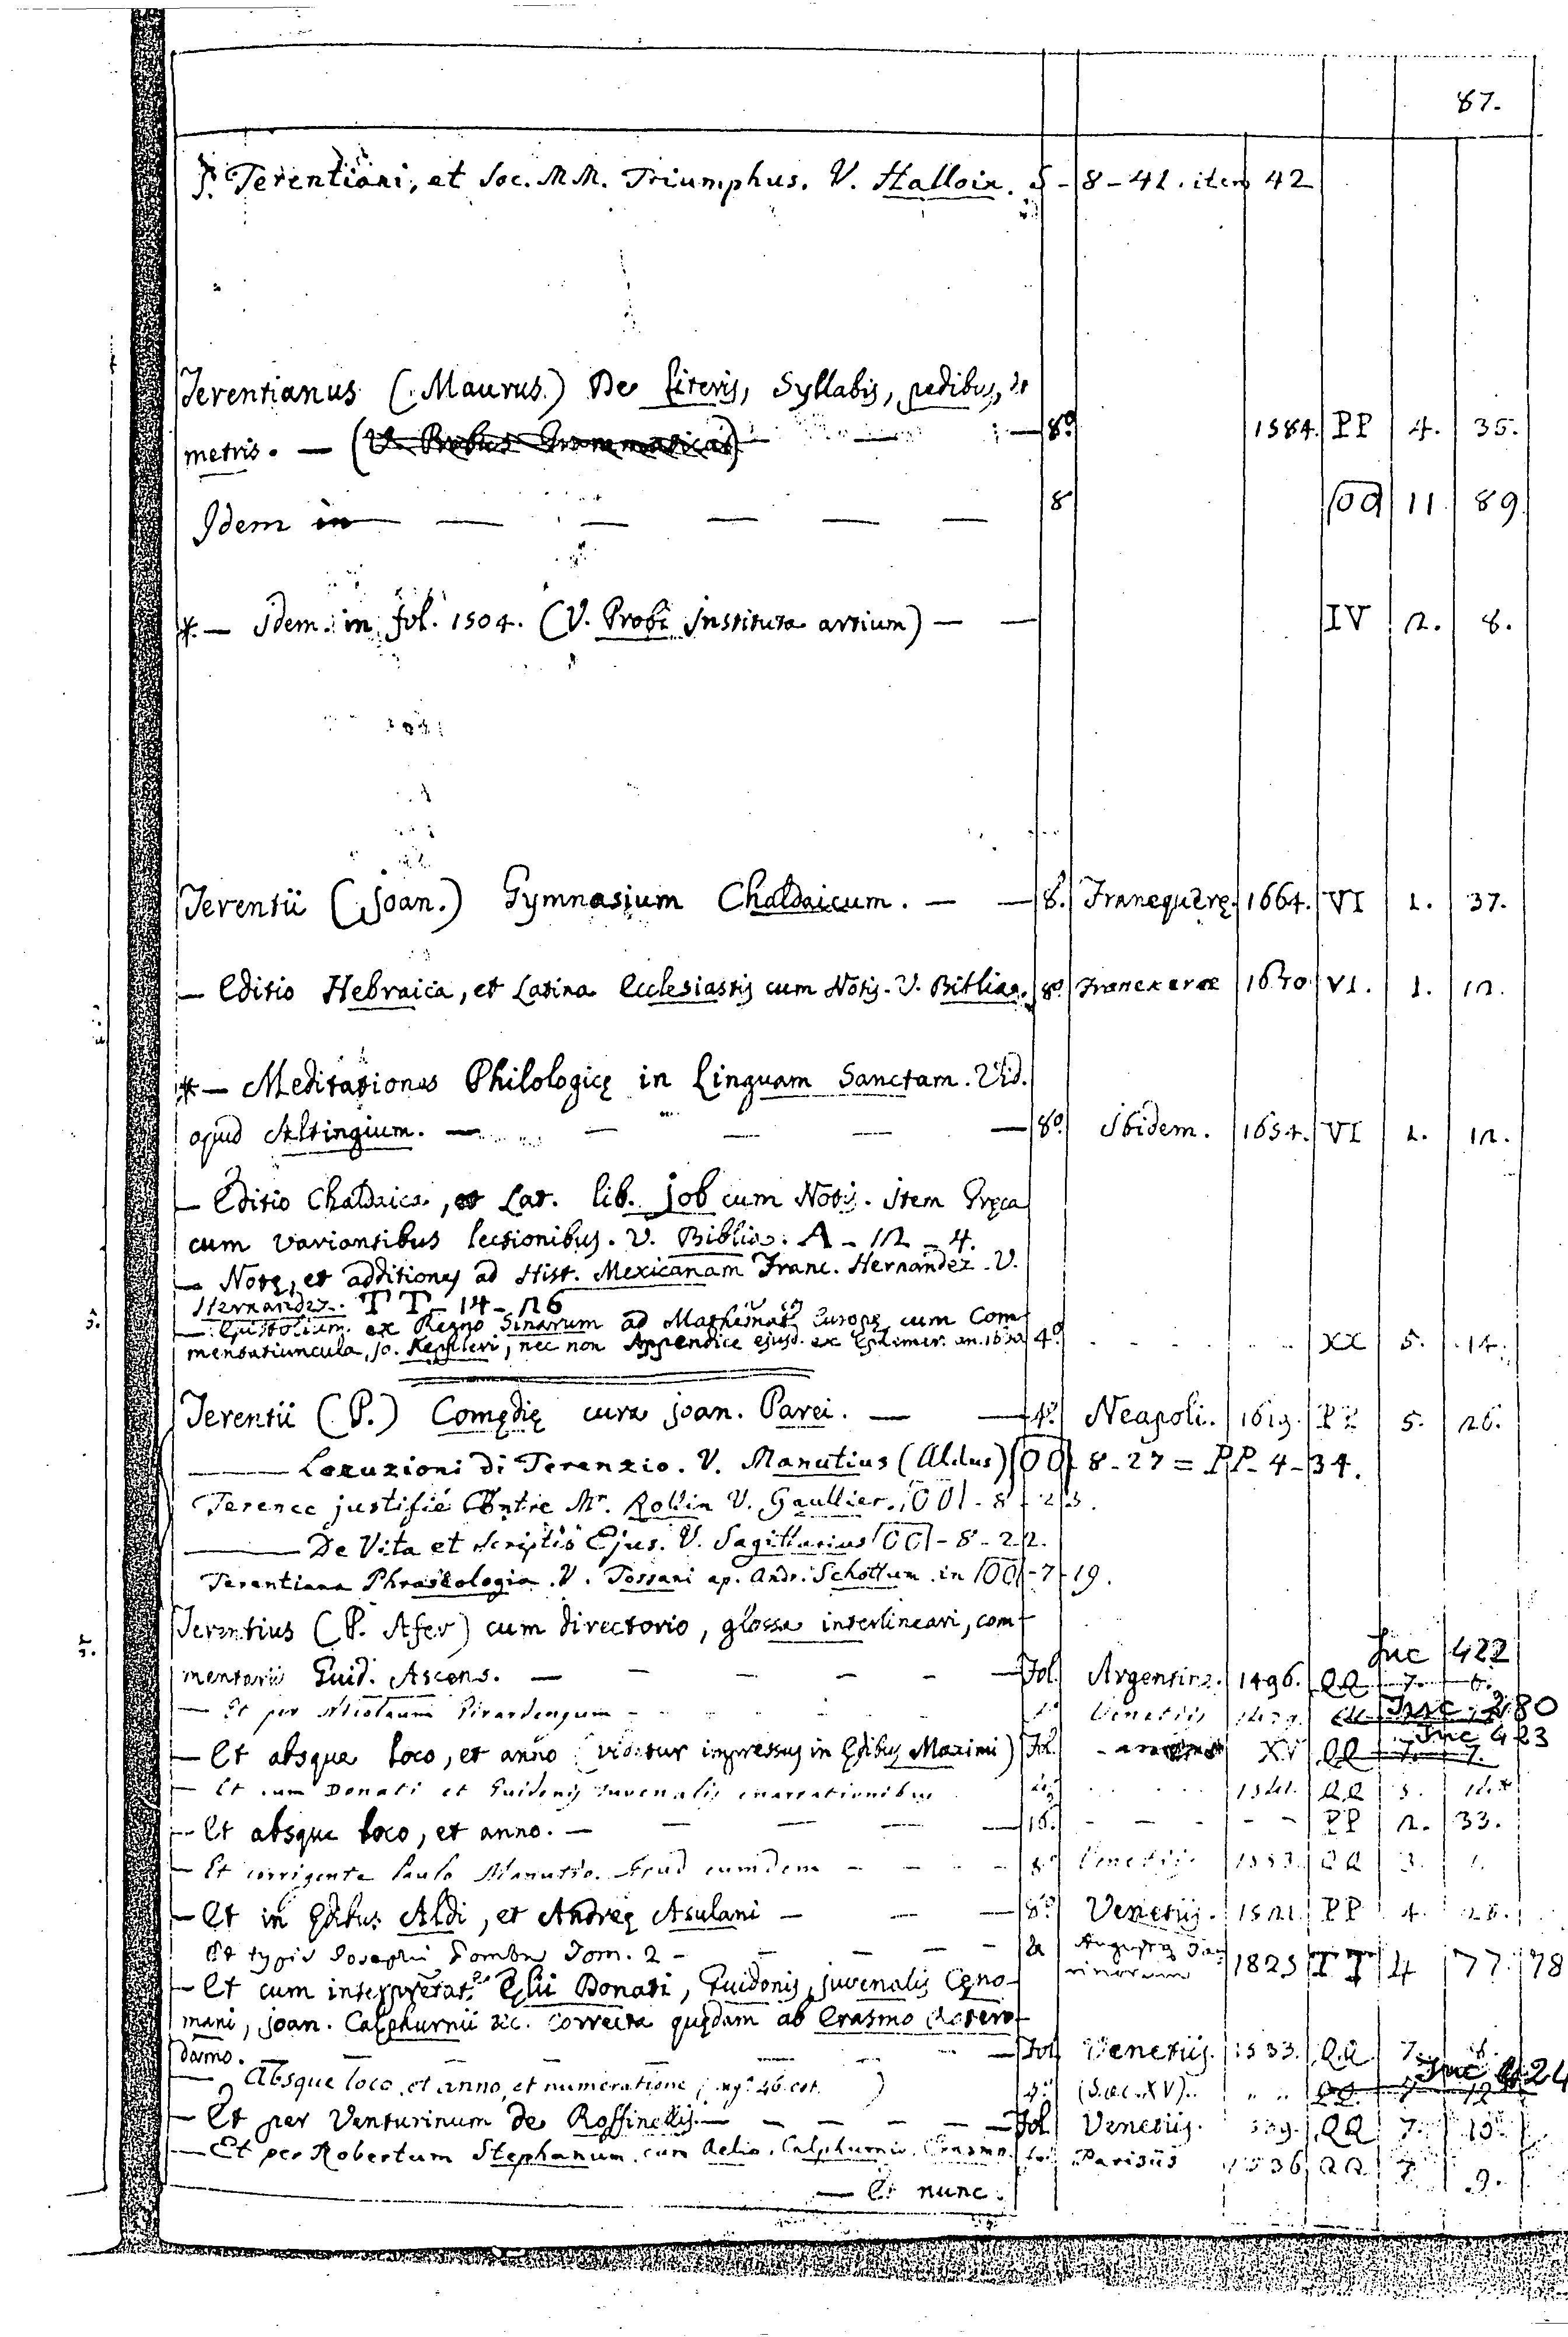 87.
S. Terentiani, et Soc. MM. Triumphus. V. Halloix. S - 8 - 41. item 42
Terentianus (Maurus) De Literis, Syllabis, pedibus, et
metris. — (V. Probus Grammaticus) — — — 8.º 1584. PP 4. 35.
Idem in — — — — — — 8 OO 11 89
*. — Idem in fol. 1504. (V. Probi Instituta artium) — — IV 2. 8.
Terentii (Joan.) Gymnasium Chaldaicum. — — 8. Franequerę. 1664. VI 1. 37.
— Editio Hebraica, et Latina Ecclesiastis cum Notis. V. Biblia. 8º Franexerae VI. 1. 12.
*— Meditationes Philologicę in Linguam Sanctam. Vid.
apud Altingium. — — — — — 8º. Ibidem. 1654. VI 1. 12.
— Editio Chaldaica, et Lat. lib. Job cum Notis. Item Gręca
cum variantibus lectionibus. V. Biblia: A - 12 - 4.
— Notę, et additiones ad Hist. Mexicanam Franc. Hernandez. V.
Hernandez. TT - 14 - 26
— Epistolium ex Regno Sinarum ad Mathemat. Europę cum Com
mentatiuncula, Jo. Keppleri, nec non Appendice ejusd. ex Ephemer. an. 4º - - - - XX 5. 14.
Terentii (P.) Comędię cura Joan. Parei. — — 4º. Neapoli. 1619. PP 5. 26.
—— Locuzioni di Terenzio. V. Manutius (Aldus) OO - 8 - 27 = PP - 4 - 34.
Terence justifié Contre Mr. Rollin V. Gaullier. OO - 8 - 23.
—— De Vita et Scriptis Ejus. V. Sagittarius OO - 8 - 22.
Terentiana Phraseologia. V. Tossani ap. Andr. Schottum. in OO - 7 - 19.
Terentius (P. Afer) cum directorio, glossa interlineari, com
Inc 422
mentariis Guid. Ascens. — — — — — — Fol. Argentinę. 1496. QQ 7. 6.
— Et per Nicolaum Girardengum - - - - Venetiis QQ Inc. 380
Inc 423
— Et absque loco, et anno (videtur impressus in Ędibus Maximi) Fol. XV QQ 7. 7.
— Et cum Donati et Guidonis Juvenalis enarrationibus - - - QQ 3.
— Et absque loco, et anno. — — — — — 16. - - - - - PP 2. 33.
— Et corrigente Paulo Manutio. Apud eumdem - - - - 8º Venetiis 1553. QQ 3. 1.
— Et in Ędibus Aldi, et Andreę Asulani — — — 8º. Venetiis. 1521. PP 4. 28.
Et typis Josephi Pomba Tom. 2 — — — — — Augustę Tau
rinorum 1825 TT 4 77. 78
— Et cum interpretat. Ęlii Donati, Guidonis, Juvenalis Cęno-
mani, Joan. Calphurnii &c. correcta quędam ab Erasmo Rotero-
damo. — — — — — — — Fol. Venetiis. 1533. QQ 7. 8.
Inc 424
— Absque loco, et anno, et numeratione, ) (Sęc. XV). QQ 7 12
— Et per Venturinum de Roffinellis. — — — — — Fol Venetiis. QQ 7.
— Et per Robertum Stephanum. cum Aelio, Calphurnio, Erasmo. fol. Parisiis 1536 QQ 7. 9.
— Et nunc.